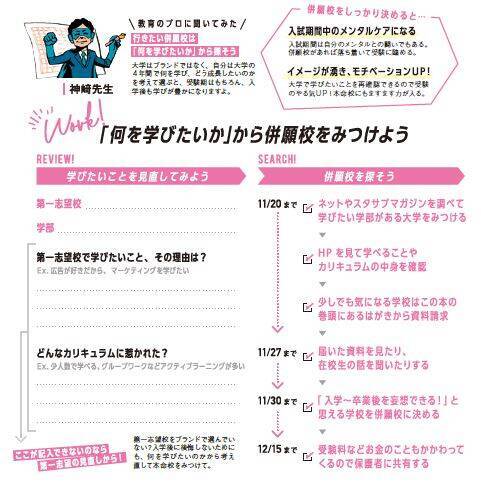 教育のプロに聞いてみた
行きたい併願校は
「何を学びたいか」から探そう
大学はブランドではなく、自分は大学の
4年間で何を学び、どう成長したいのか
を考えて選ぶと、受験期はもちろん、入
学後も学びが豊かになりますよ。
神﨑先生
併願校をしっかり決めると…
入試期間中のメンタルケアになる
入試期間は自分のメンタルとの闘いでもある。
併願校があれば落ち着いて受験に臨める。
イメージが湧き、モチベーションUP!
大学で学びたいことを再確認できるので受験
のやる気UP!本命校にもますます力が入る。
Work!
「何を学びたいか」から併願校をみつけよう
REVIEW!
学びたいことを見直してみよう
第一志望校
学部
第一志望校で学びたいこと、その理由は?
Ex. 広告が好きだから、マーケティングを学びたい
どんなカリキュラムに惹かれた?
Ex. 少人数で学べる、グループワークなどアクティブラーニングが多い
ここが記入できないのなら
第一志望の見直しから!
第一志望校をブランドで選んでい
ない?入学後に後悔しないために
も、何を学びたいのかから考え
直して本命校をみつけて。
SEARCH!
併願校を探そう
11/20 まで
ネットやスタサプマガジンを調べて
学びたい学部がある大学をみつける
HP を見て学べることや
カリキュラムの中身を確認
少しでも気になる学校はこの本の
巻頭にあるはがきから資料請求
11/27 まで
届いた資料を見たり、
在校生の話を聞いたりする
11/30 まで
「入学〜卒業後を妄想できる!」と
思える学校を併願校に決める
12/15 まで
受験料などお金のこともかかわって
くるので保護者に共有する